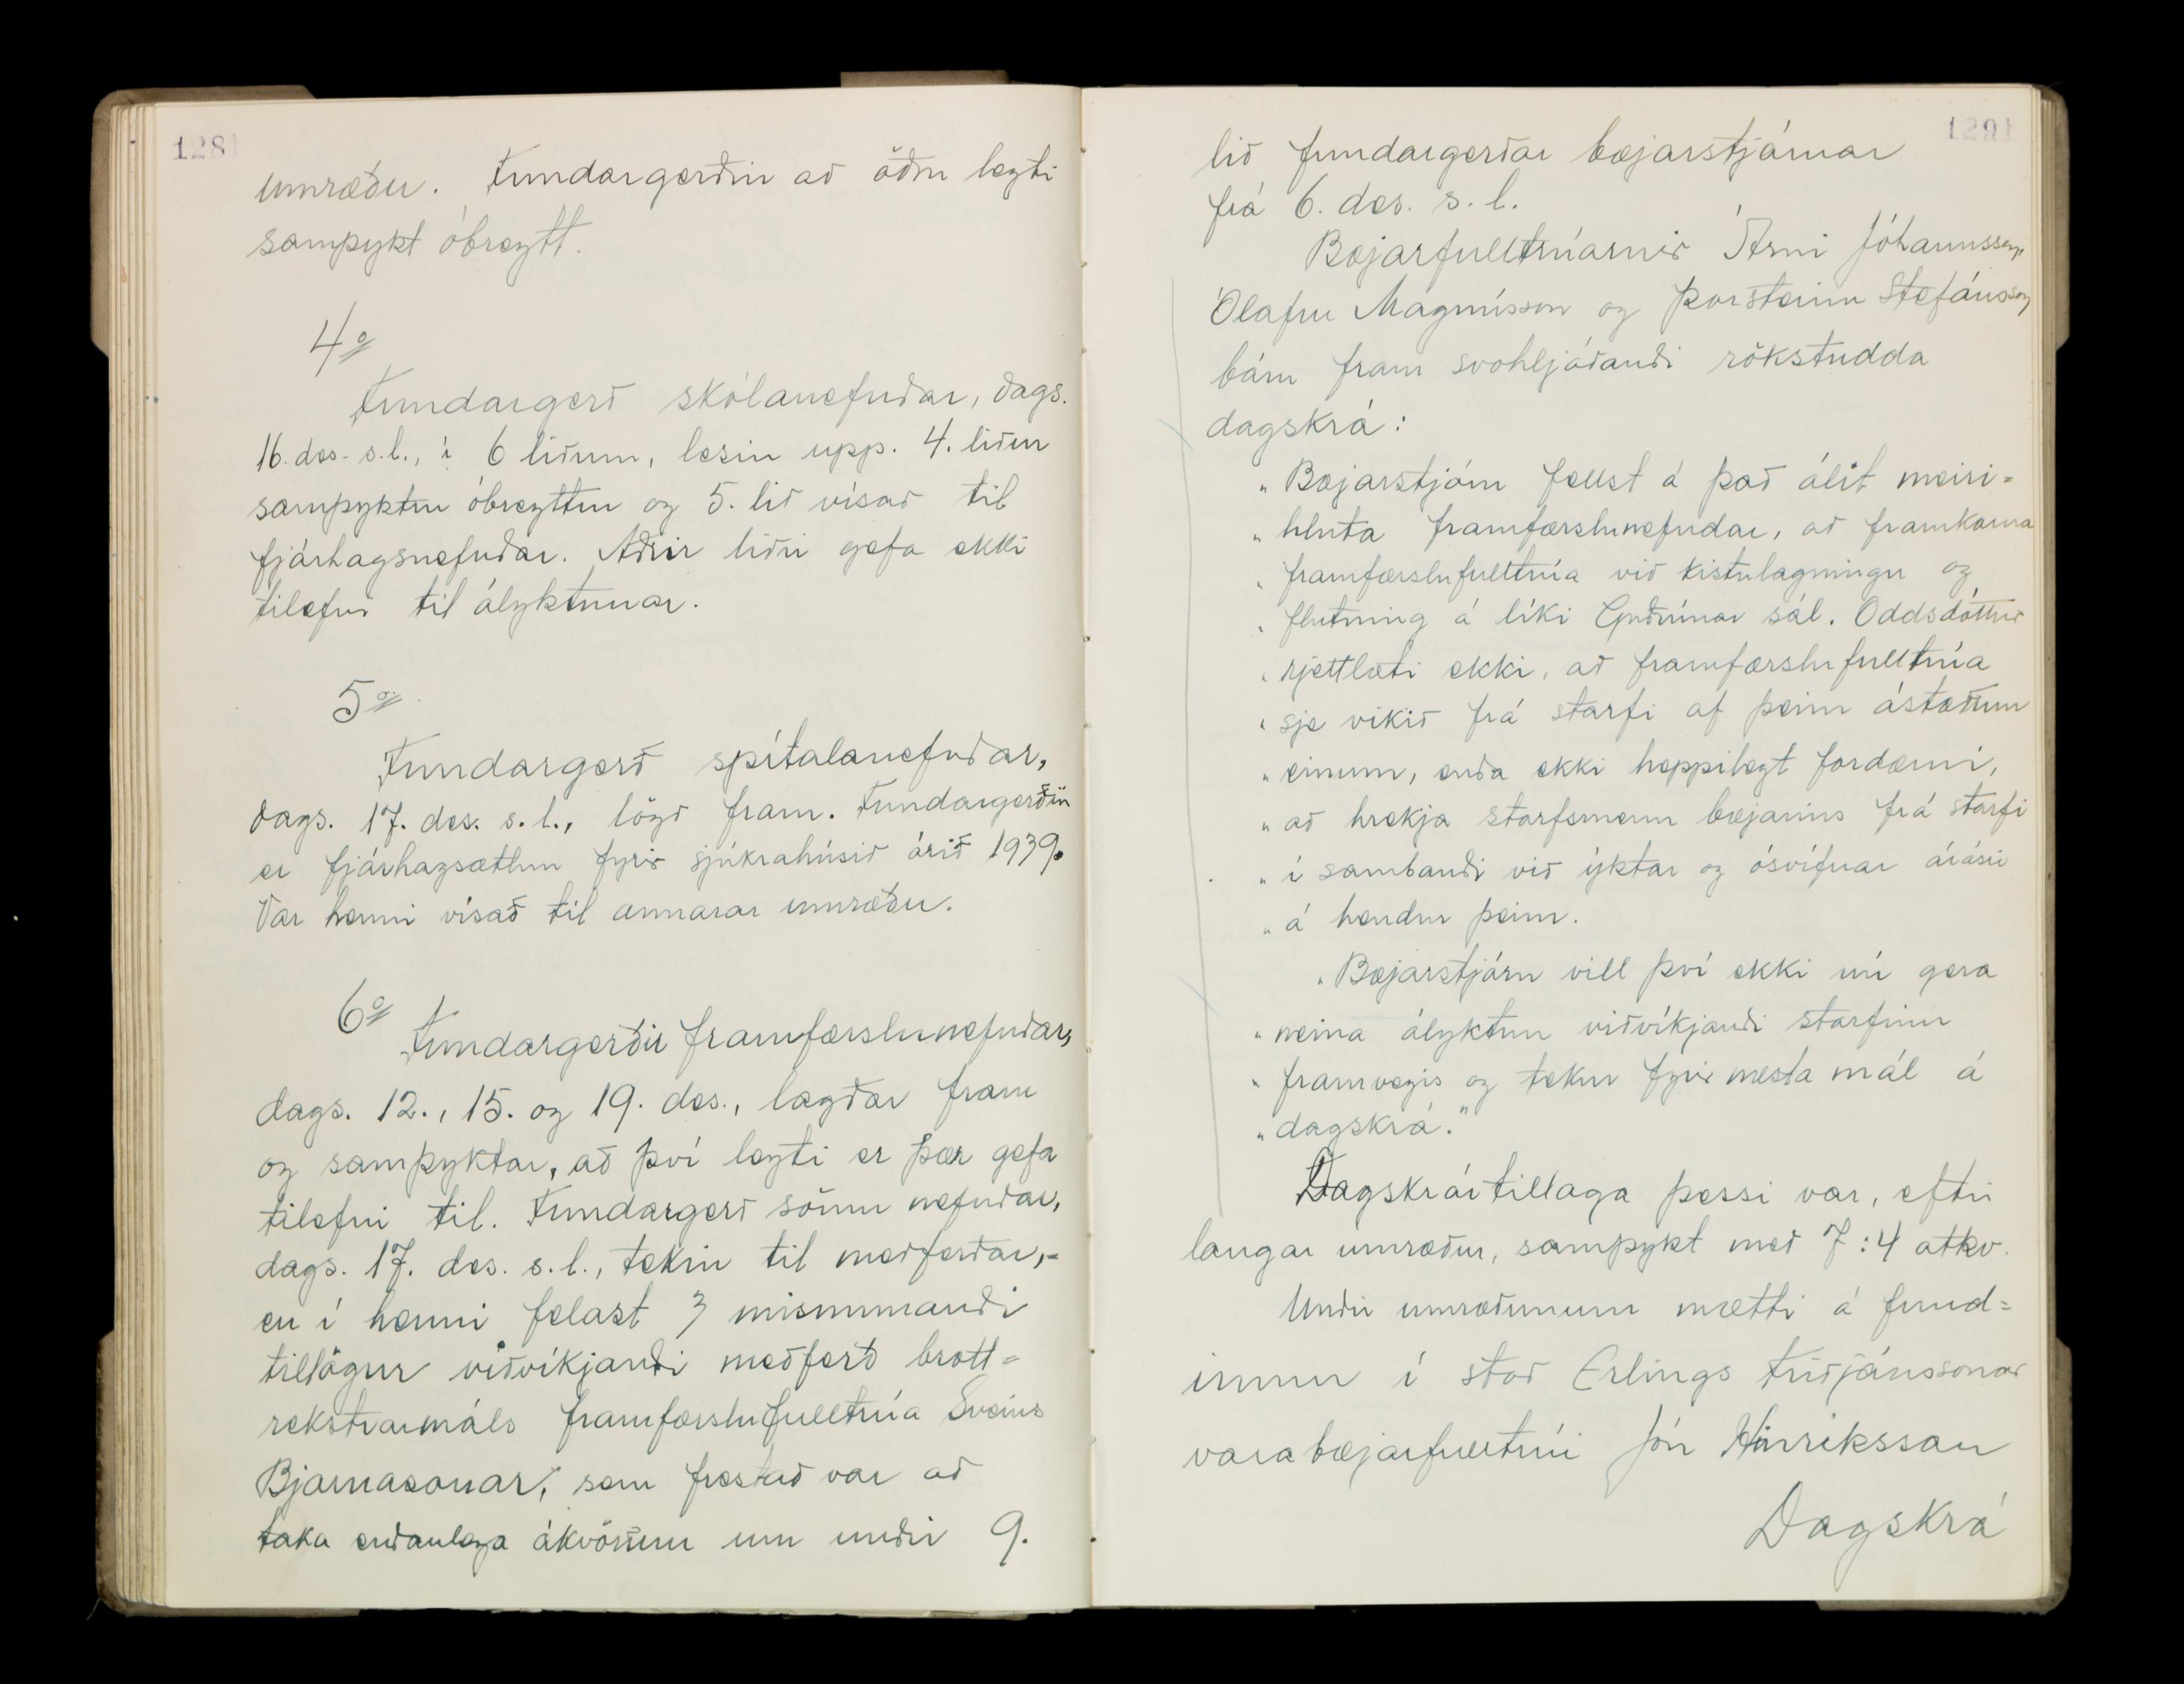 128
umræðu. Fundargerðin að öðru leyti
samþykt óbreytt.
4º
Fundargerð skólanefndar, dags.
16. des. s.l., í 6 liðum, lesin upp. 4. liður
samþyktur óbreyttur og 5. lið vísað til
fjárhagsnefndar. Aðrir liðir gefa ekki
tilefni til ályktunar.
5º
Fundargerð spítalanefndar,
dags. 17. des. s.l., lögð fram. Fundargerðin
er fjárhagsætlun fyrir sjúkrahúsið árið 1939.
Var henni vísað til annarar umræðu.
6º Fundargerðir framfærslunefndar,
dags. 12., 15. og 19. des., lagðar fram
og samþyktar, að því leyti er þær gefa
tilefni til. Fundargerð sömu nefndar,
dags. 17. des. s.l., tekin til meðferðar,-
en í henni felast 3 mismunandi
tillögur viðvíkjandi meðferð brott=
rekstrarmáls framfærslufulltrúa Sveins
Bjarnasonar, sem frestað var að
taka endanlega ákvörðun um undir 9.
129
lið fundargerðar bæjarstjórnar
frá 6. des. s.l.
Bæjarfulltrúarnir Árni Jóhannsson,
Ólafur Magnússon og Þorsteinn Stefánsson
báru fram svohljóðandi rökstudda
dagskrá:
„Bæjarstjórn fellst á það álit meiri=
„hluta framfærslunefndar, að framkoma
„framfærslufulltrúa við kistulagningu og
„flutning á líki Guðrúnar sál. Oddsdóttur
„rjettlæti ekki, að framfærslufulltrúa
„sje vikið frá starfi af þeim ástæðum
„einum, enda ekki heppilegt fordæmi,
„að hrekja starfsmenn bæjarins frá starfi
„í sambandi við ýktar og ósvífnar árásir
„á hendur þeim.
„Bæjarstjórn vill því ekki nú gera
„neina ályktun viðvíkjandi starfinu
„framvegis og tekur fyrir næsta mál á
„dagskrá."
Dagskrártillaga þessi var, eftir
langar umræður, samþykt með 7:4 atkv.
Undir umræðunum mætti á fund=
inum í stað Erlings Friðjónssonar
varabæjarfulltrúi Jón Hinriksson
Dagskrá